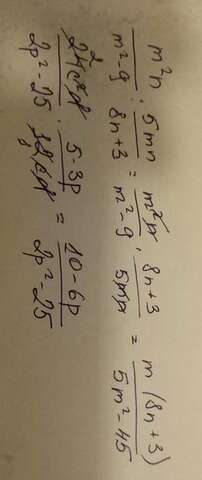 m²n / m²-9 : 5mn / 8n+3 = m²n / m²-9 · 8n+3 / 5mn = m (8n+3) / 5m²-45
2p²-25 · 5-3p = 10-6p / 2p²-25